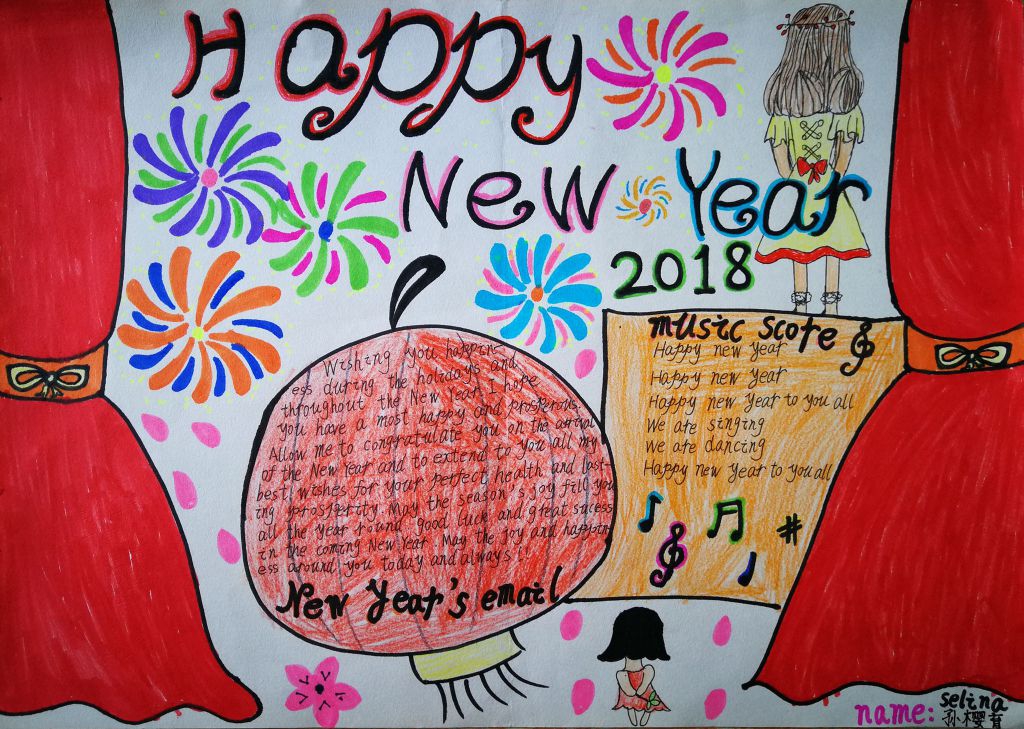 Happy
New Year
2018
Wishing you happin-
ess during the holidays and
throughout the New Year I hope
you have a most happy and prosperous.
Allow me to congratulate you on the arrival
of the New Year and to extend to you all my
best wishes for your perfect health and last-
ing prosperity May the season's joy fill you
all the year round good luck and great sucess
in the coming New Year. May the joy and happin
ess around you today and always!
New Year's email
music score
Happy new year
Happy new year
Happy new Year to you all
We are singing
We are dancing
Happy new Year to you all
#
name: selina
孙樱育